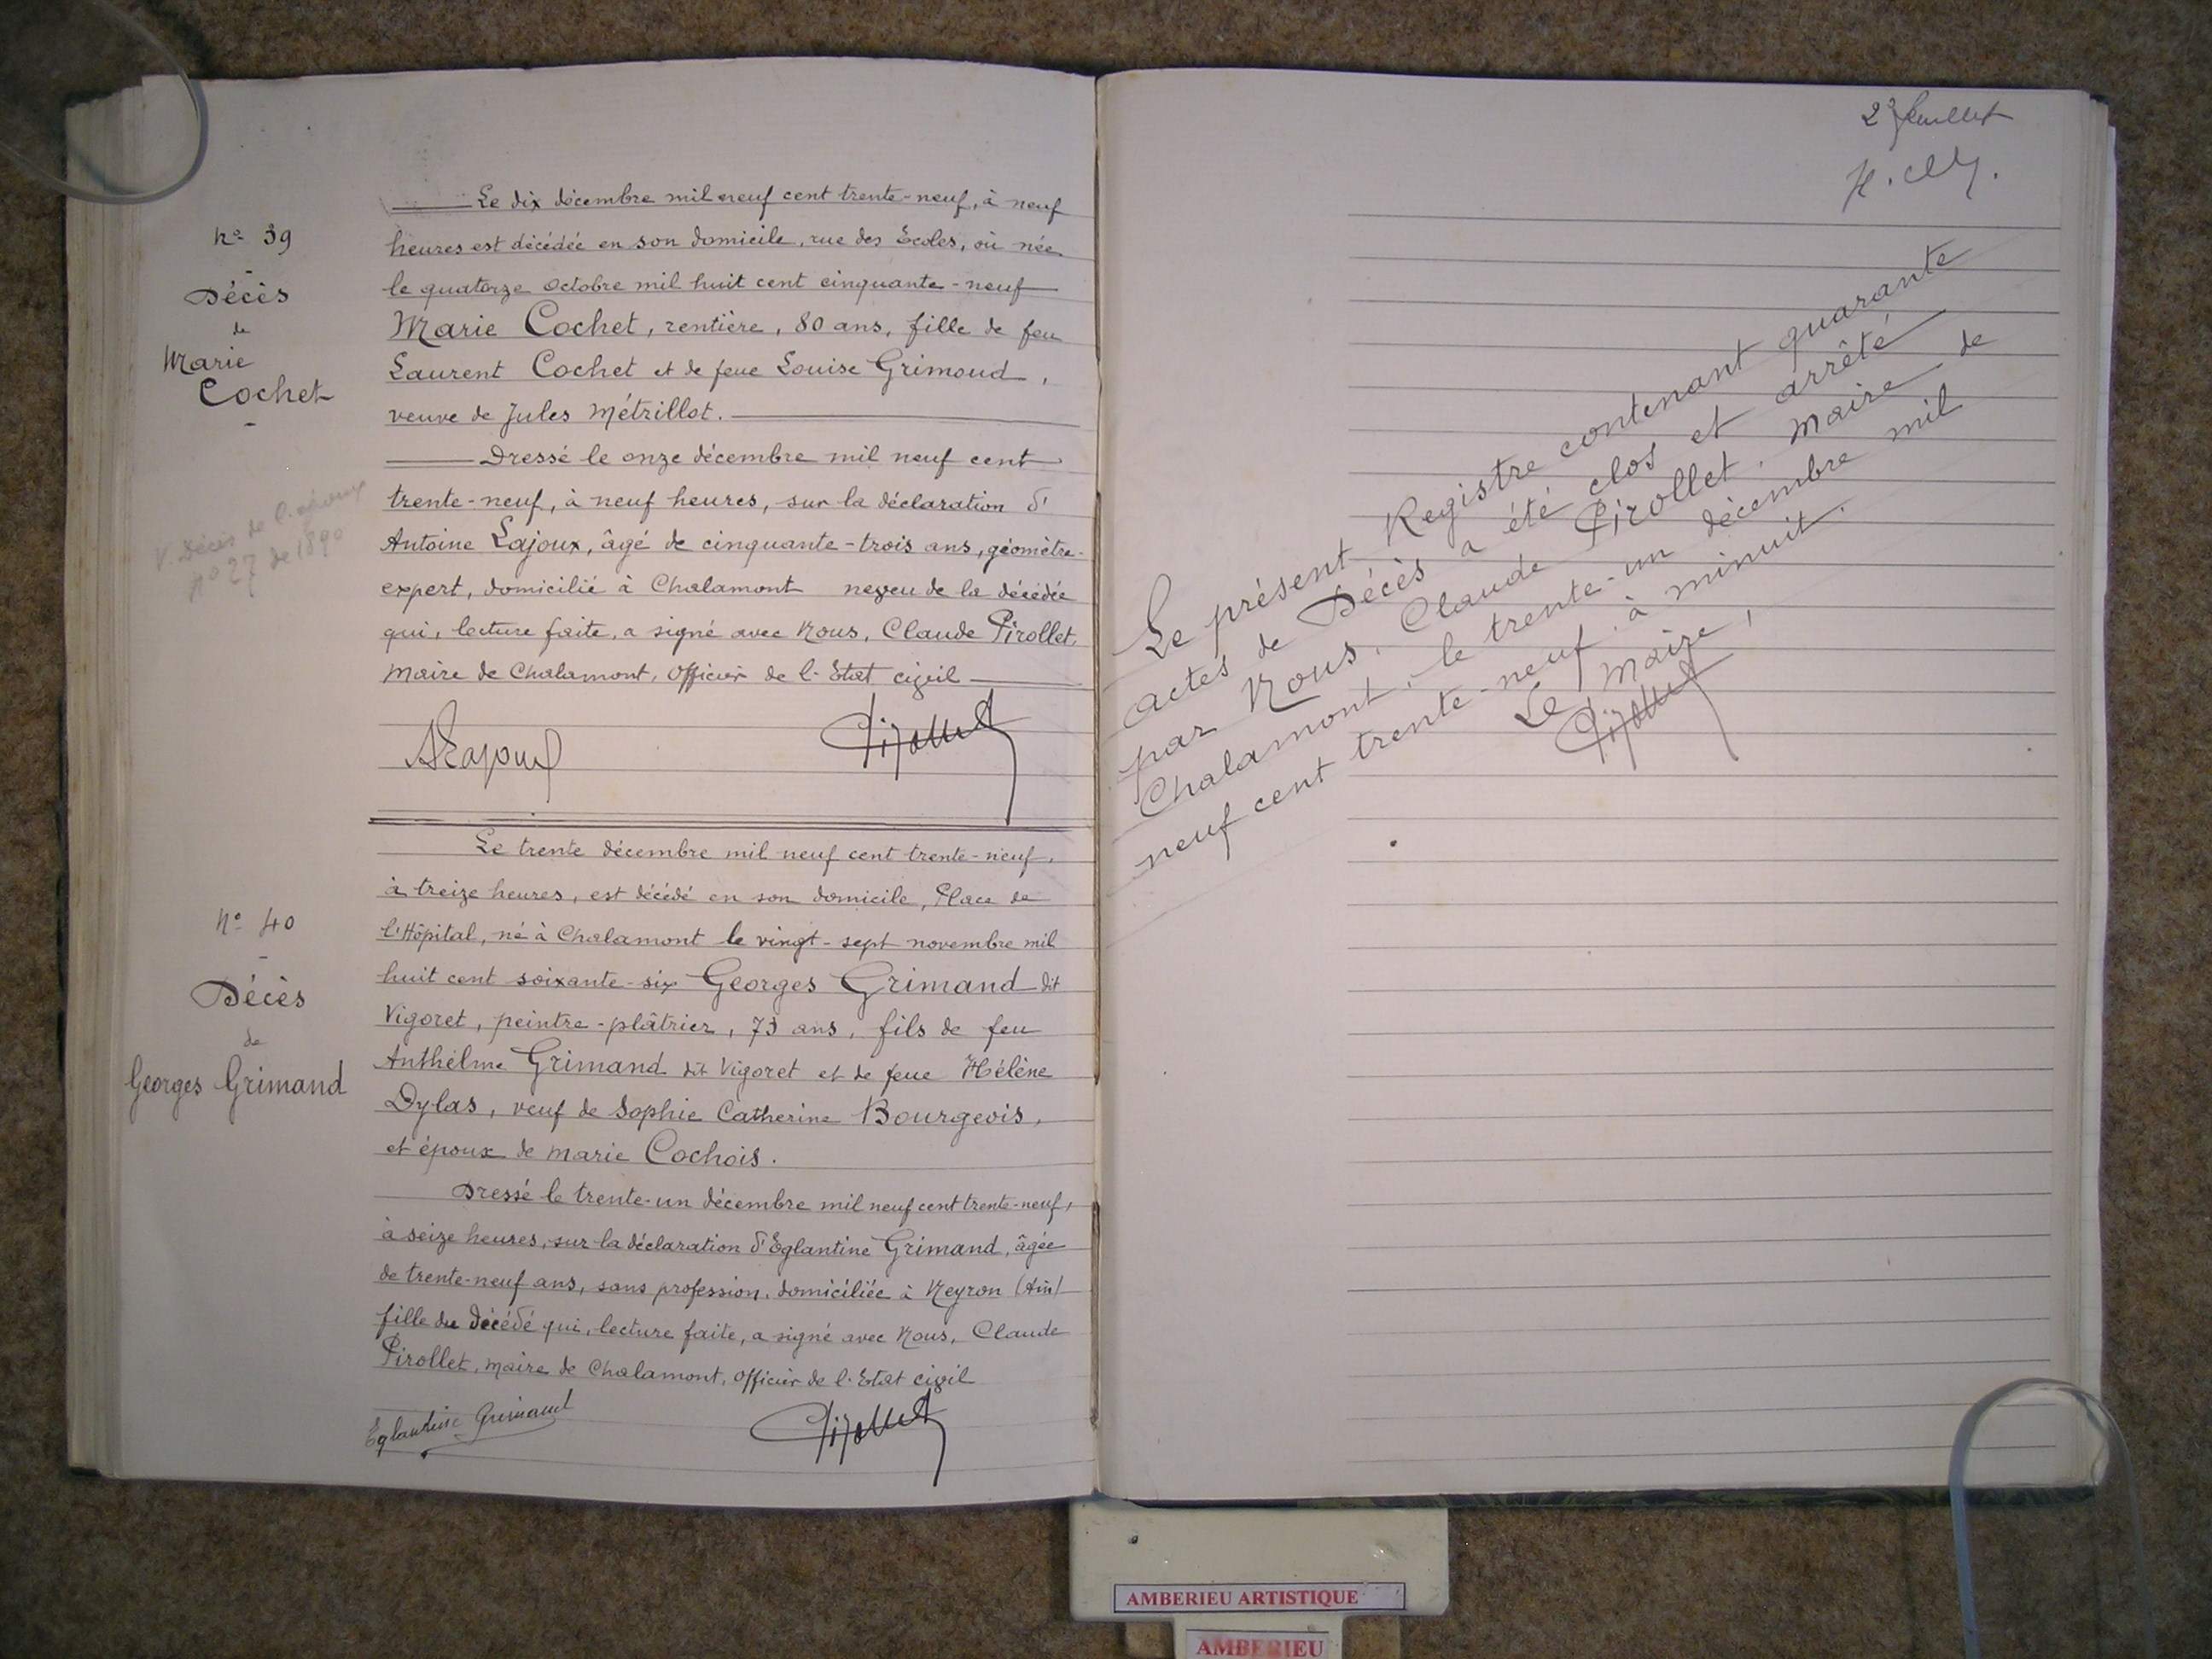 n° 39
Décès
de
Marie
Cochet
V. Décès de l'époux
n° 27 de 1890
Le dix décembre mil neuf cent trente-neuf, à neuf
heures est décédée en son domicile, rue des Ecoles, où née
le quatorze Octobre mil huit cent cinquante-neuf
Marie Cochet, rentière, 80 ans, fille de feu
Laurent Cochet et de feue Louise Grimoud,
veuve de Jules Métrillot.
Dressé le onze décembre mil neuf cent
trente-neuf, à neuf heures, sur la déclaration d'
Antoine Lajoux, âgé de cinquante-trois ans, géomètre-
expert, domicilié à Chalamont neveu de la décédée
qui, lecture faite, a signé avec Nous, Claude Pirollet,
Maire de Chalamont, Officier de l'Etat civil
ALajoux
Pirollet
n° 40
Décès
de
Georges Grimand
Le trente décembre mil neuf cent trente-neuf,
à treize heures, est décédé en son domicile, Place de
l'Hôpital, né à Chalamont le vingt-sept novembre mil
huit cent soixante-six Georges Grimand dit
Vigoret, peintre-plâtrier, 73 ans, fils de feu
Anthelme Grimand dit Vigoret et de feue Hélène
Dylas, veuf de Sophie Catherine Bourgeois,
et époux de Marie Cochois.
Dressé le trente-un décembre mil neuf cent trente-neuf,
à seize heures, sur la déclaration d'Eglantine Grimand, âgée
de trente-neuf ans, sans profession, domiciliée à Neyron (Ain)
fille du décédé qui, lecture faite, a signé avec Nous, Claude
Pirollet, Maire de Chalamont, Officier de l'Etat civil
Eglantine Grimand
Pirollet
feuillet
Le présent Registre contenant quarante
actes de Décès a été clos et arrêté
par Nous, Claude Pirollet, Maire de
Chalamont, le trente-un décembre mil
neuf cent trente-neuf, à minuit.
Le Maire,
Pirollet
AMBERIEU ARTISTIQUE
AMBERIEU